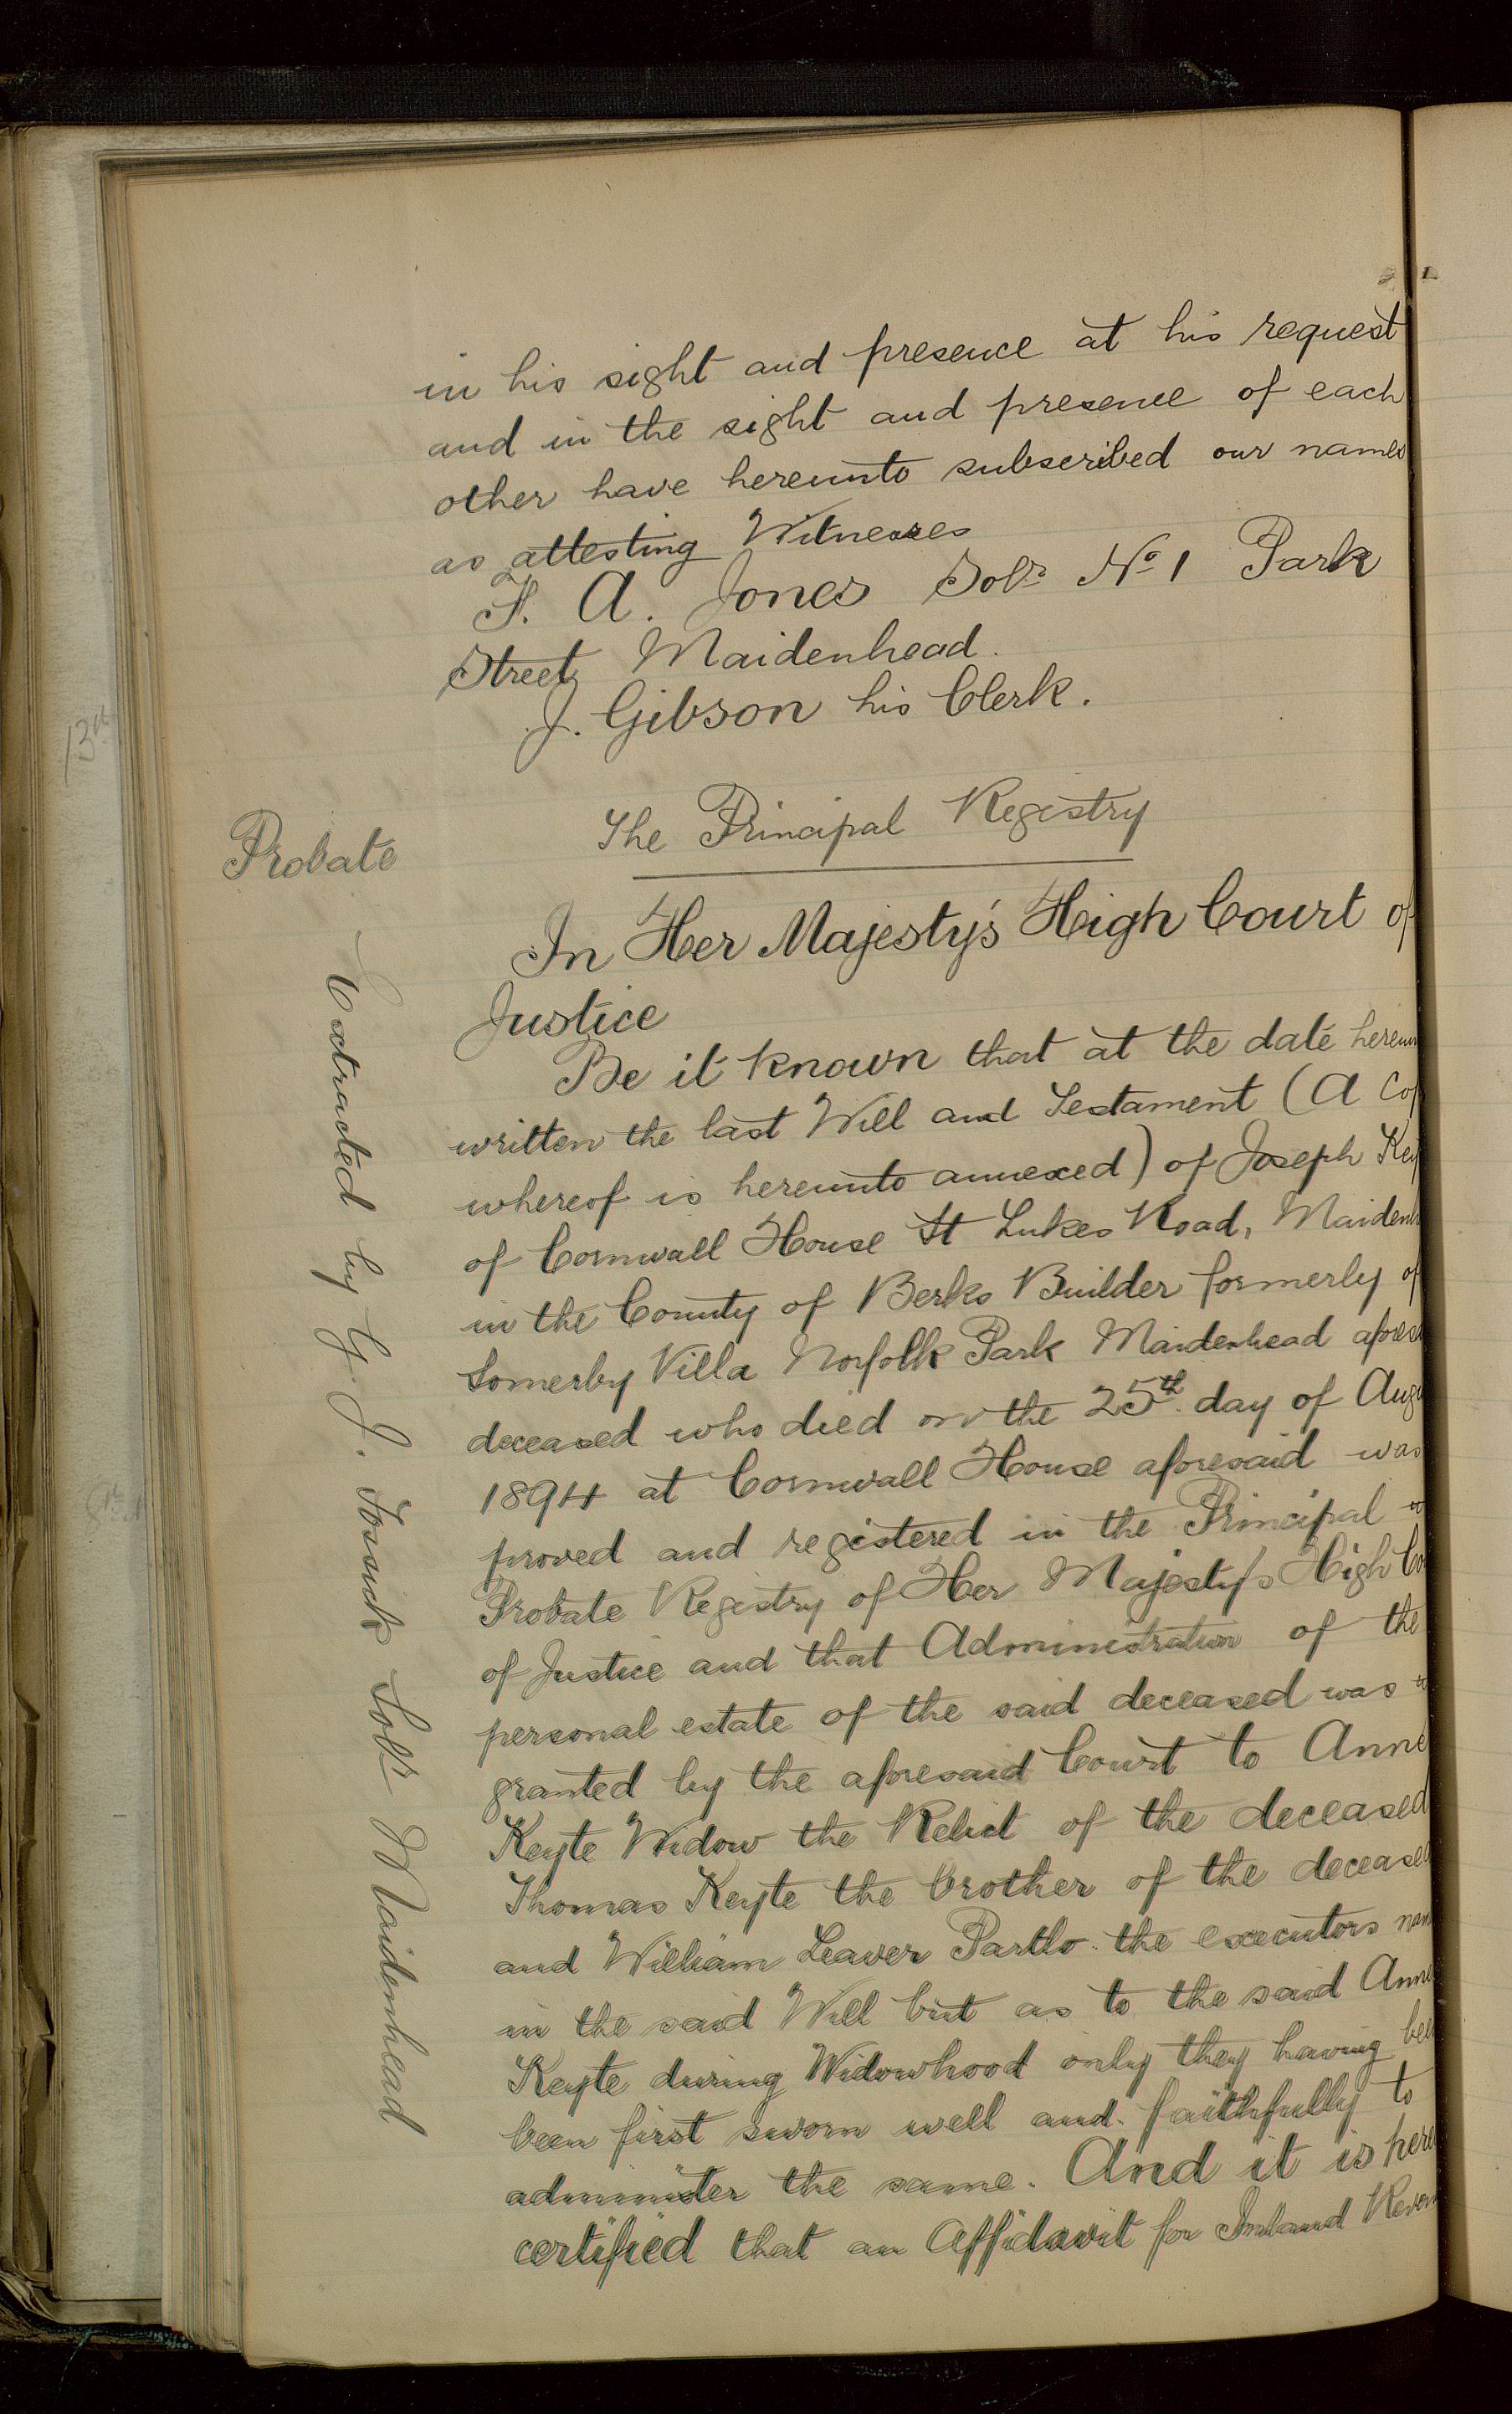 in his sight and presence at his request
and in the sight and presence of each
other have hereunto subscribed our names
as attesting Witnesses
F. A. Jones Solr. No. 1 Park
Street Maidenhead.
J. Gibson his Clerk.
Probate
The Principal Registry
In Her Majesty's High Court of
Justice
Be it known that at the date hereun
written the last Will and Testament (A Cop
whereof is hereunto annexed) of Joseph Key
of Cornwall House St Lukes Road, Maidenh
in the County of Berks Builder formerly of
Somerby Villa Norfolk Park Maidenhead afores
deceased who died on the 25th. day of Augu
1894 at Cornwall House aforesaid was
proved and registered in the Principal
Probate Registry of Her Majesty's High Co
of Justice and that Administration of the
personal estate of the said deceased was
granted by the aforesaid Court to Anne
Keyte Widow the Relict of the deceased
Thomas Keyte the brother of the deceased
and William Leaver Partlo the executors nam
in the said Will but as to the said Anne
Keyte during Widowhood only they having bee
been first sworn well and faithfully to
administer the same. And it is here
certified that an Affidavit for Inland Reven
Extracted by G. J. Solr Maidenhead